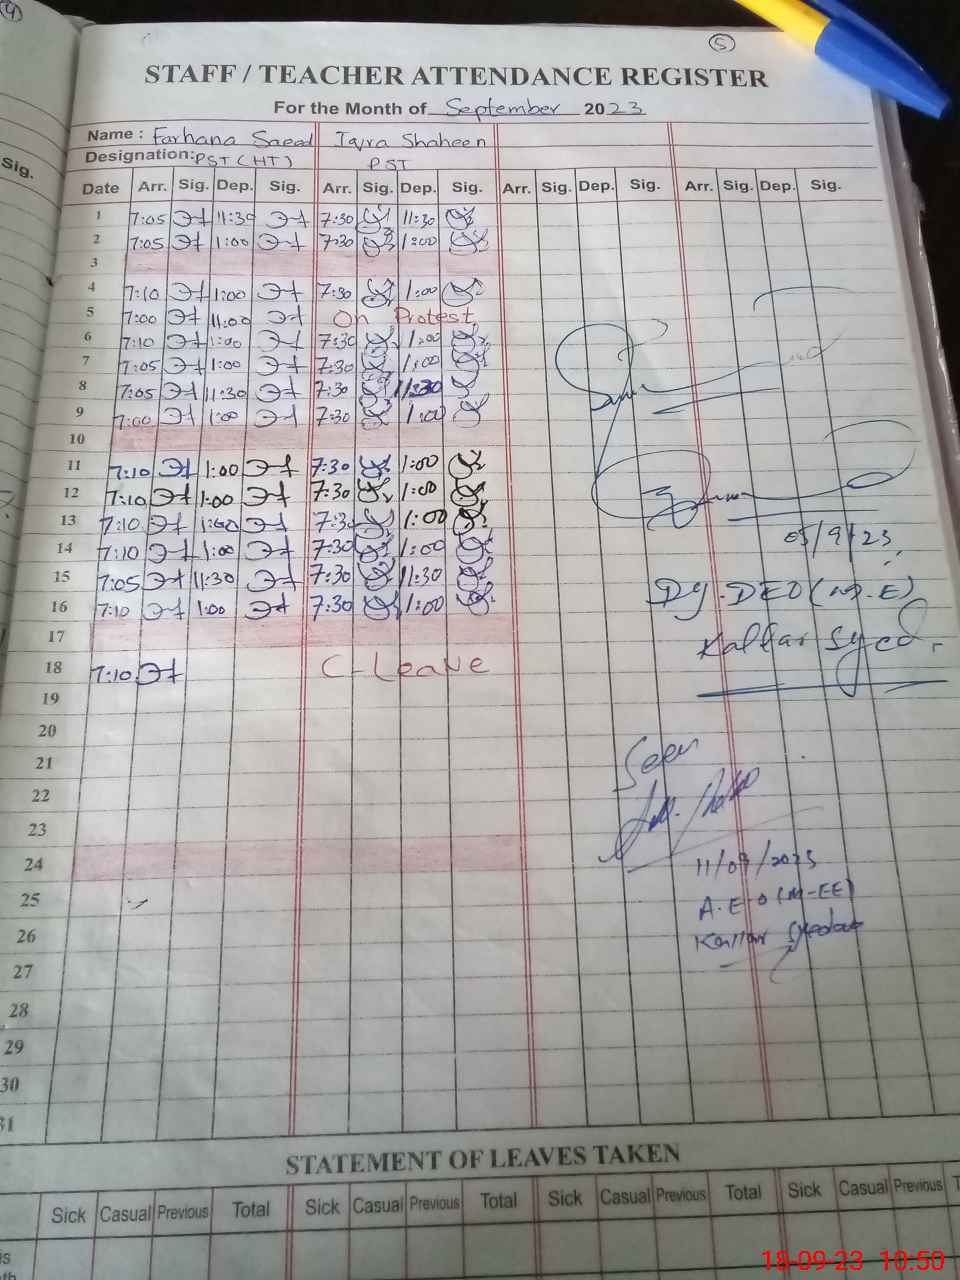 4
5
STAFF / TEACHER ATTENDANCE REGISTER
For the Month of September 2023
Name : Farhana Saeed Iqra Shaheen
Designation: PST (HT) PST
Sig.
Date Arr. Sig. Dep. Sig. Arr. Sig. Dep. Sig. Arr. Sig. Dep. Sig. Arr. Sig. Dep. Sig.
1 7:05 11:30 7:30 11:30
2 7:05 1:00 7:30 1:00
3
4 7:10 1:00 7:30 1:00
5 7:00 11:00 On Protest
6 7:10 1:00 7:30 1:00
7 7:05 1:00 7:30 1:00
8 7:05 11:30 7:30 11:30
9 7:00 1:00 7:30 1:00
10
11 7:10 1:00 7:30 1:00
12 7:10 1:00 7:30 1:00
13 7:10 1:00 7:30 1:00
14 7:10 1:00 7:30 1:00
05/9/23
15 7:05 11:30 7:30 11:30
Dy. DEO (
16 7:10 1:00 7:30 1:00
17
Kallar Syed
18 7:10 C-Leave
19
20
21
22
23
24
11/09/2023
25
A.E.O (M-EE)
26
Kallar
27
28
29
30
31
STATEMENT OF LEAVES TAKEN
Sick Casual Previous Total Sick Casual Previous Total Sick Casual Previous Total Sick Casual Previous
18-09-23 10:50